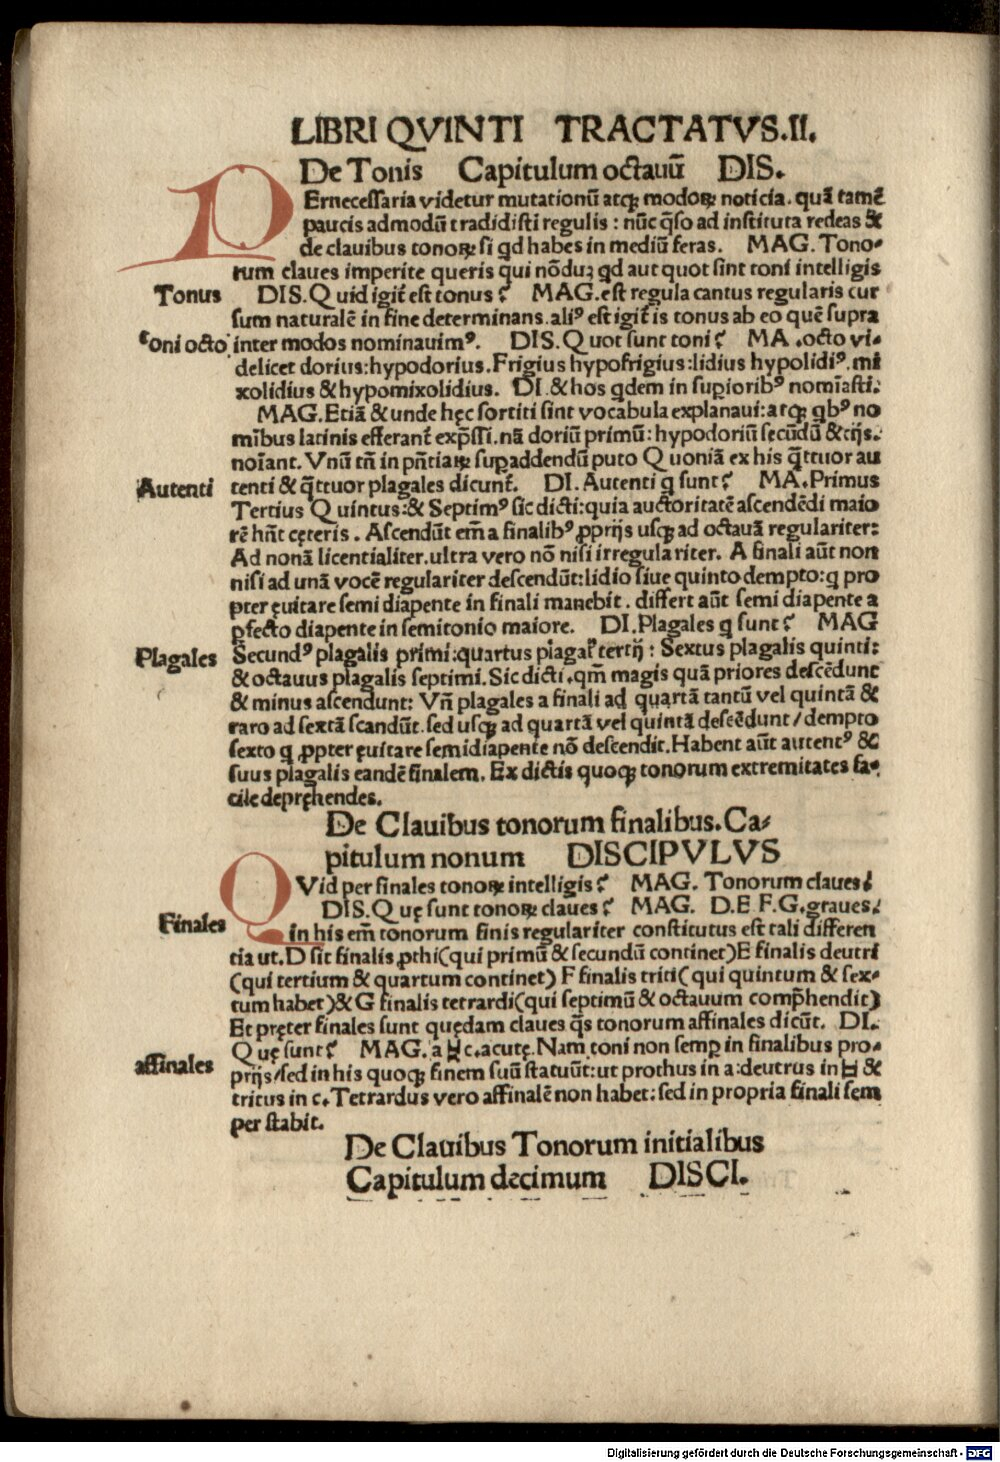 LIBRI QVINTI TRACTATVS.II.
De Tonis Capitulum octauū DIS.
PErnecessaria videtur mutationū atqꝫ modoꝝ noticia. quā tamē
paucis admodū tradidisti regulis : nūc q̄so ad instituta redeas &
de clauibus tonoꝝ si qd habes in mediū feras. MAG. Tono-
rum claues imperite queris qui nōduꝫ qd aut quot sint toni intelligis
Tonus DIS. Quid igit̄ est tonus? MAG. est regula cantus regularis cur
sum naturalē in fine determinans. aliꝰ est igit̄ is tonus ab eo quē supra
Toni octo inter modos nominauimꝰ. DIS. Quot sunt toni? MA. octo vi-
delicet dorius: hypodorius. Frigius hypofrigius: lidius hypolidiꝰ. mi
xolidius & hypomixolidius. DI. & hos qdem in supioribꝰ nomīasti:
MAG. Etiā & unde hęc sortiti sint vocabula explanaui: atqꝫ qbꝰ no
mībus latinis efferant̄ exp̄ssi. nā doriū primū: hypodoriū secūdū & cijs.
noīant. Vnū tn̄ in pn̄tiaꝝ supaddendū puto Quoniā ex his q̄ttuor au
Autenti tenti & q̄ttuor plagales dicunt̄. DI. Autenti q sunt? MA. Primus
Tertius Quintus: & Septimꝰ sic dicti: quia auctoritatē ascendēdi maio
rē hn̄t cęteris. Ascendūt em̄ a finalibꝰ ꝓprijs usqꝫ ad octauā regulariter:
Ad nonā licentialiter. ultra vero nō nisi irregulariter. A finali aūt non
nisi ad unā vocē regulariter descendūt: lidio siue quinto dempto: q pro
pter ęuitare semi diapente in finali manebit. differt aūt semi diapente a
ꝑfecto diapente in semitonio maiore. DI. Plagales q sunt? MAG
Plagales Secundꝰ plagalis primi: quartus plagal' tertij: Sextus plagalis quinti:
& octauus plagalis septimi. Sic dicti. qm̄ magis quā priores descēdunt
& minus ascendunt: Vn̄ plagales a finali ad quartā tantū vel quintā &
raro ad sextā scandūt. sed usqꝫ ad quartā vel quintā descēdunt / dempto
sexto q ꝓpter ęuitare semidiapente nō descendit. Habent aūt autentꝰ &
suus plagalis eandē finalem. Ex dictis quoqꝫ tonorum extremitates fa-
cile depręhendes.
De Clauibus tonorum finalibus. Ca-
pitulum nonum DISCIPVLVS
QVid per finales tonoꝝ intelligis? MAG. Tonorum claues:
DIS. Quę sunt tonoꝝ claues? MAG. D.E F.G. graues:
Finales in his em̄ tonorum finis regulariter constitutus est tali differen
tia ut. D sit finalis ꝓthi (qui primū & secundū continet) E finalis deutri
(qui tertium & quartum continet) F finalis triti (qui quintum & sex-
tum habet) & G finalis tetrardi (qui septimū & octauum comp̄hendit)
Et pręter finales sunt quędam claues q̄s tonorum affinales dicūt. DI.
Quę sunt? MAG. a ♮ c. acutę. Nam toni non semp in finalibus pro-
affinales prijs / sed in his quoqꝫ finem suū statuūt: ut prothus in a: deutrus in ♮ &
tritus in c. Tetrardus vero affinalē non habet: sed in propria finali sem
per stabit.
De Clauibus Tonorum initialibus
Capitulum decimum DISCI.
Digitalisierung gefördert durch die Deutsche Forschungsgemeinschaft - DFG